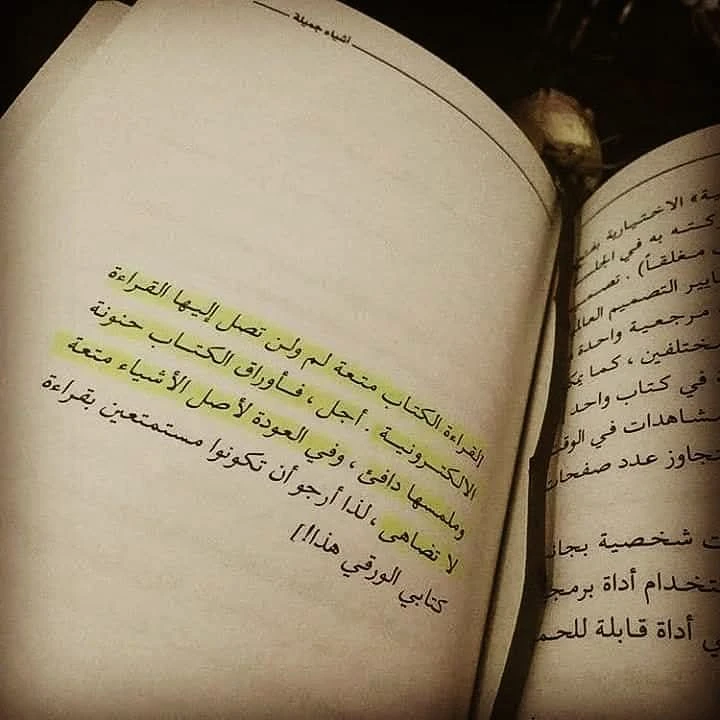 أشياء جميلة
القراءة الكتاب متعة لم ولن تصل إليها القراءة
الالكترونية . أجل ، فأوراق الكتاب حنونة
وملمسها دافئ ، وفي العودة لأصل الأشياء متعة
لا تضاهى ، لذا أرجو أن تكونوا مستمتعين بقراءة
كتابي الورقي هذا!]
ية» الاختيارية
كته به في
مغلقاً) .
ايير التصميم
مرجعية واحدة
ختلفين ، كما
في كتاب واحد
شاهدات في الوقت
تجاوز عدد صفحات
ت شخصية
ستخدام أداة
ي أداة قابلة